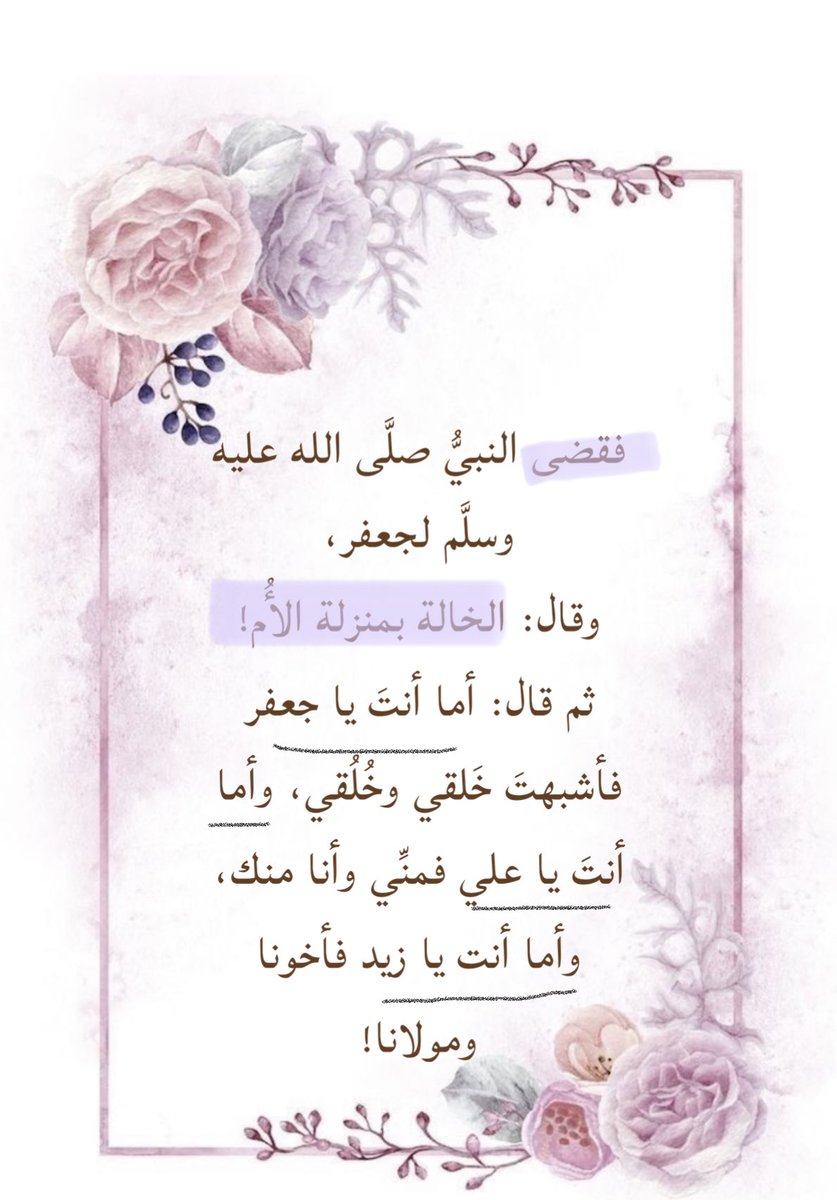 فقضى النبيُّ صلَّى الله عليه
وسلَّم لجعفر،
وقال: الخالة بمنزلة الأُم!
ثم قال: أما أنتَ يا جعفر
فأشبهتَ خَلقي وخُلُقي، وأما
أنتَ يا علي فمنِّي وأنا منك،
وأما أنت يا زيد فأخونا
ومولانا!